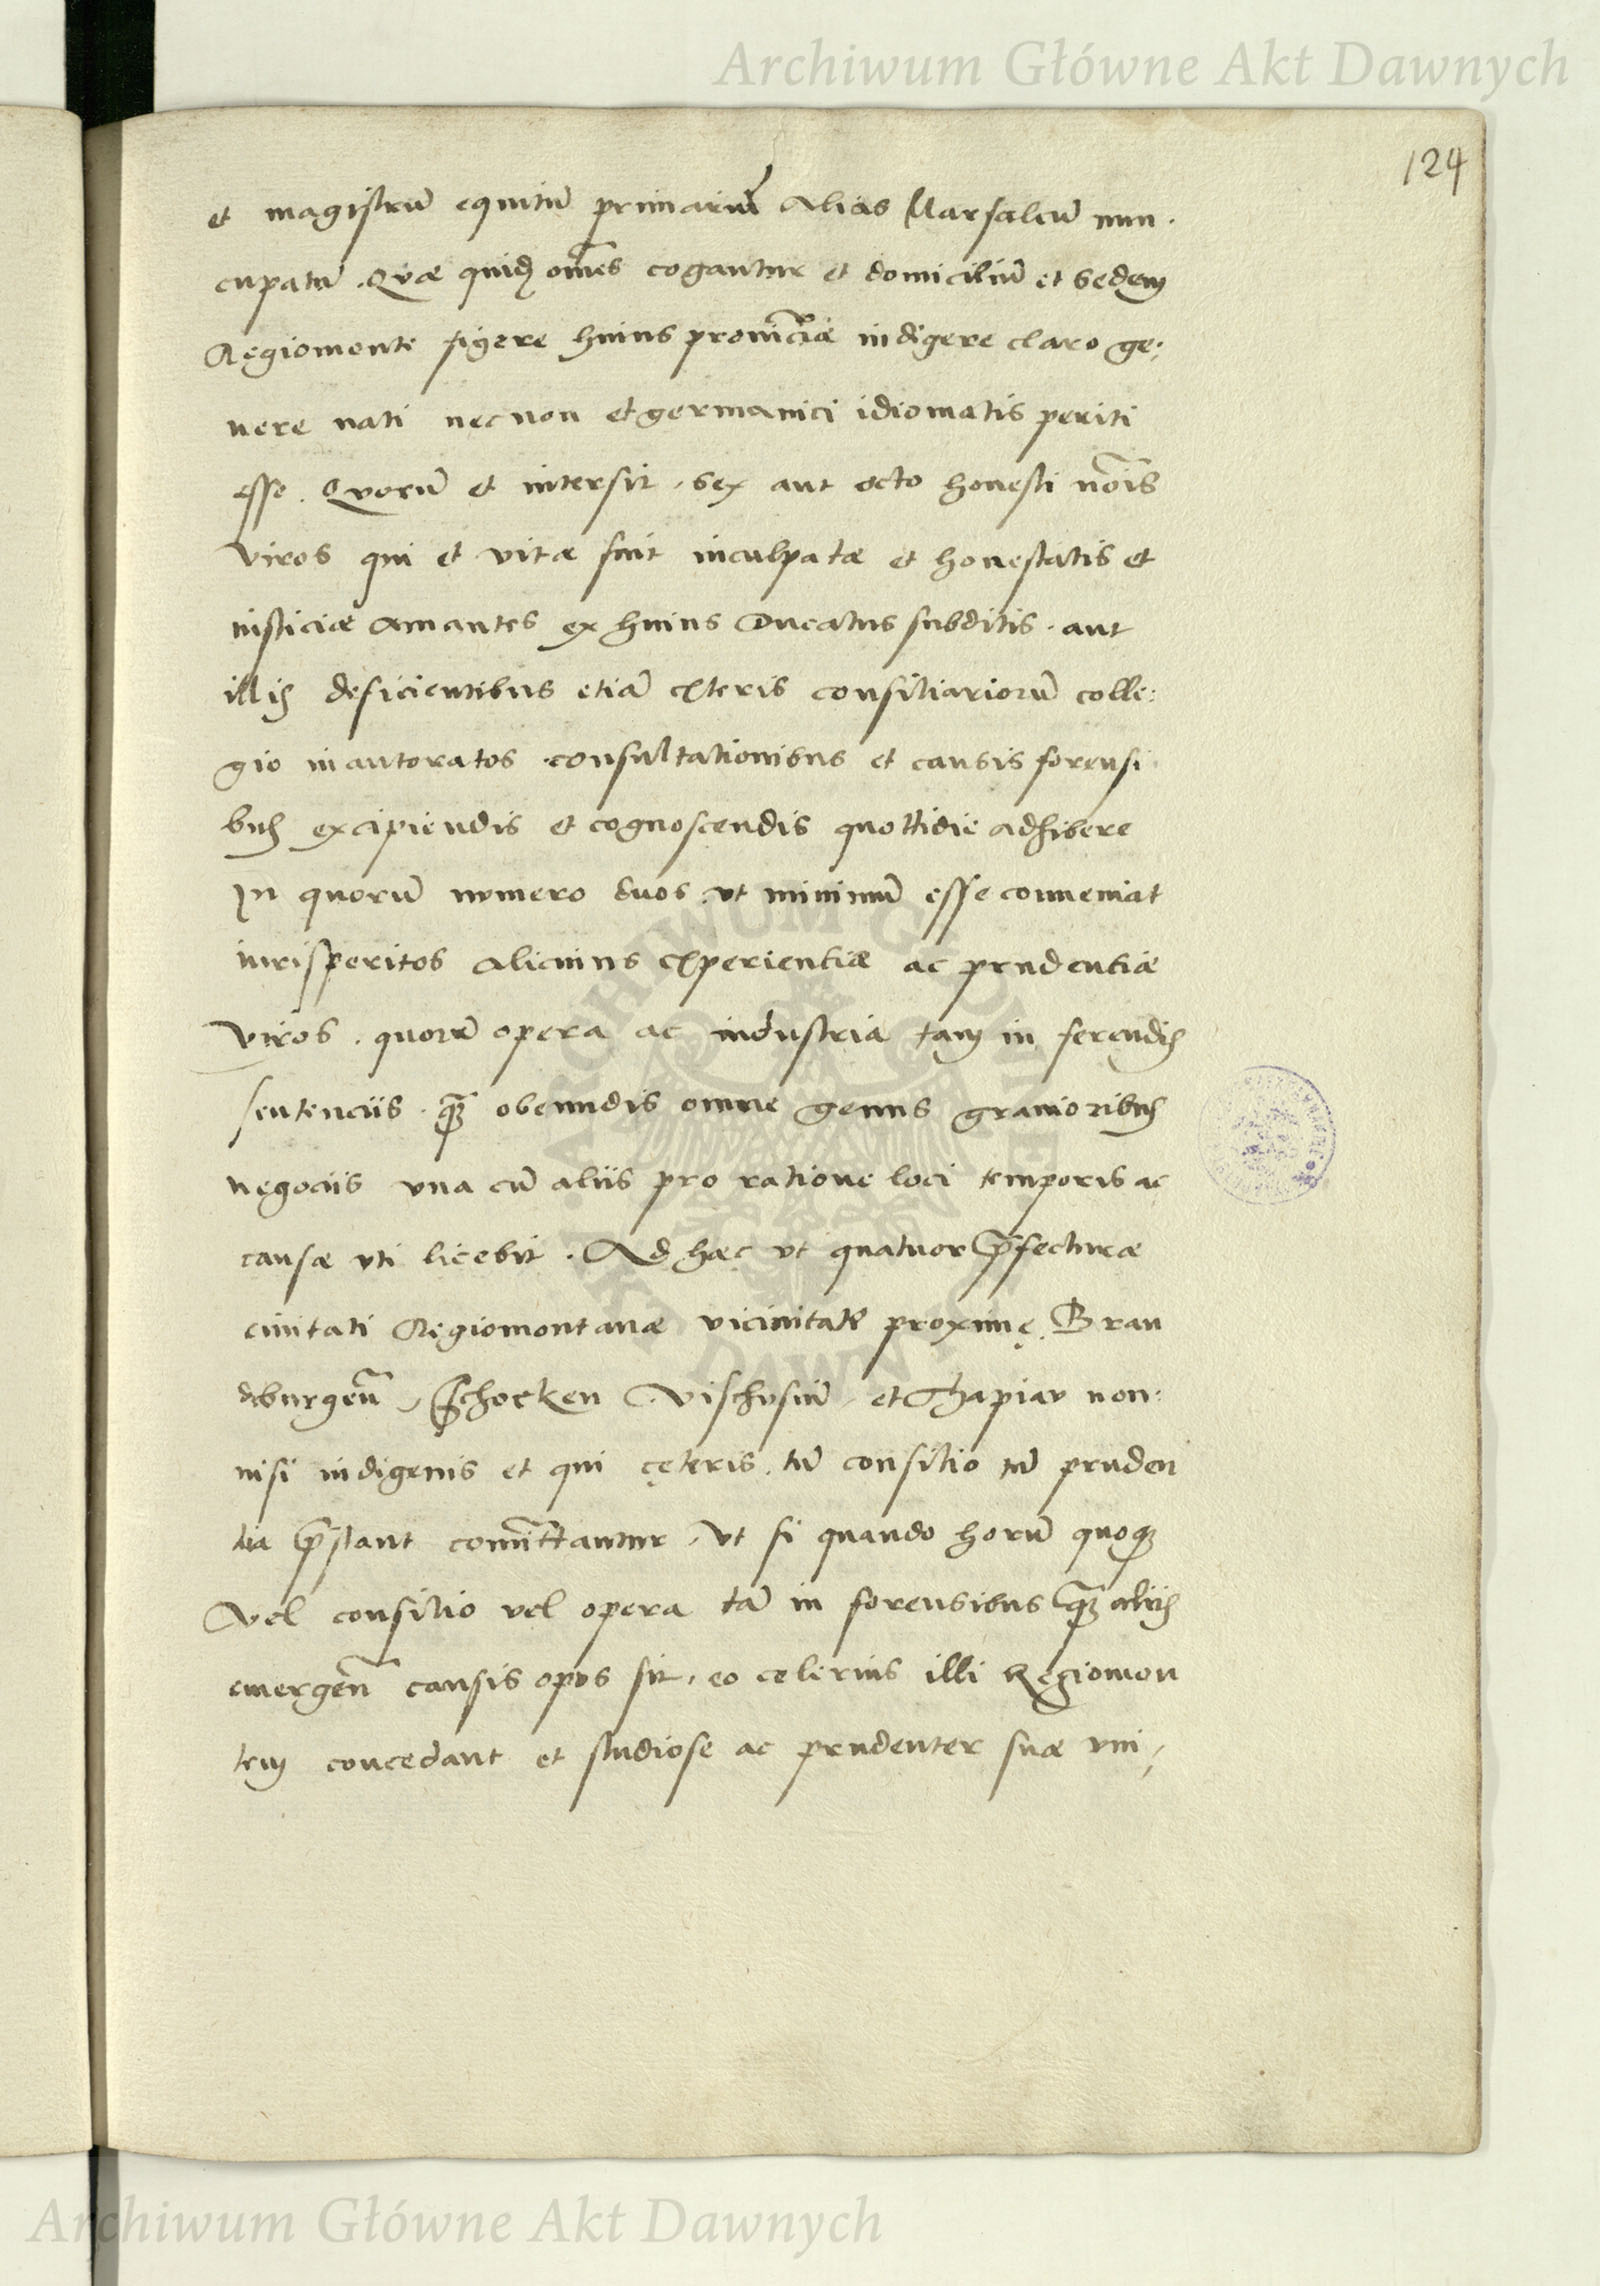 Archiwum Główne Akt Dawnych
124
et magistrū equitū primariū alias Marsalcū nun.
cupatū. Quæ quidē om̄es cogantur et domiciliū et sedem
Regiomonte figere huius provinciæ indigere claro ge:
nere nati nec non et germanici idiomatis periti
esse. Quorū et intersit, sex aut octo honesti no͞is
viros qui et vitæ sint inculpatæ et honestatis et
iusticiæ amantes ex huius Ducatus subditis. aut
illis deficientibus etiā exteris consiliariorū colle:
gio inautoratos consultationibus et causis forensi
bus excipiendis et cognoscendis quottidie adhibere
In quorū numero duos ut minimū esse conveniat
iurisperitos alicuius experientiæ ac prudentiæ
viros. quorū opera ac industria tam in ferendis
sentenciis. quā obeundis omne genus gravioribus
negociis una cū aliis pro ratione loci temporis ac
causæ uti licebit. Ad hæc ut quatuor p̄fecturæ
civitati Regiomontanæ vicinitate proximę, Bran
deburgeñ, Schocken Vischusiū, et Thapiav non:
nisi indigenis et qui cęteris, tū consilio tū pruden
tia p̄stant com̄ittantur, ut si quando horū quoq3
vel consilio vel opera tā in forensibus quā aliis
emergeñ causis opus sit, eo celerius illi Regiomon
tem concedant et studiose ac prudenter suæ vni,
Archiwum Główne Akt Dawnych